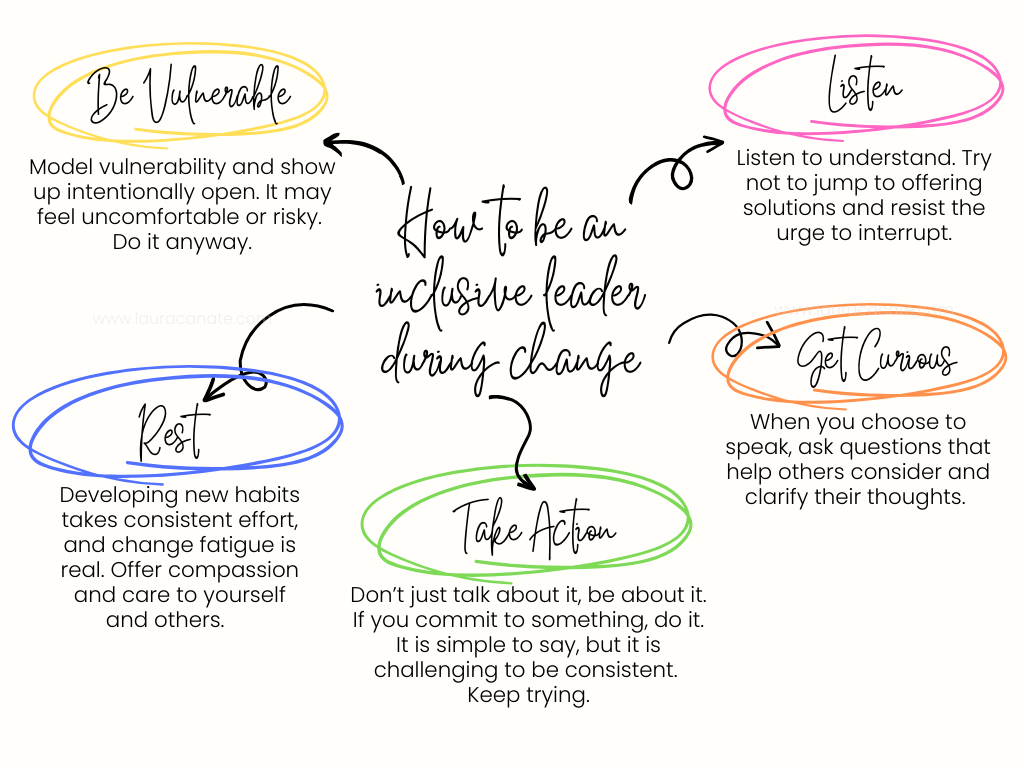 How to be an
inclusive leader
during change
Be Vulnerable
Model vulnerability and show
up intentionally open. It may
feel uncomfortable or risky.
Do it anyway.
Listen
Listen to understand. Try
not to jump to offering
solutions and resist the
urge to interrupt.
www.lauracanate.com
www.lauracanate.com
Get Curious
When you choose to
speak, ask questions that
help others consider and
clarify their thoughts.
Rest
Developing new habits
takes consistent effort,
and change fatigue is
real. Offer compassion
and care to yourself
and others.
Take Action
Don’t just talk about it, be about it.
If you commit to something, do it.
It is simple to say, but it is
challenging to be consistent.
Keep trying.